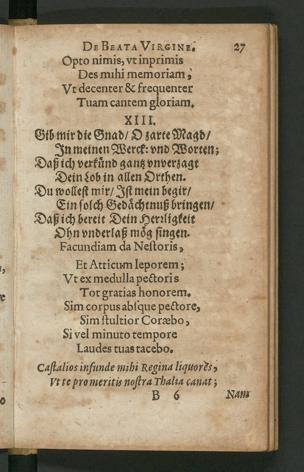 DE BEATA VIRGINE. 27
Opto nimis, vt inprimis
Des mihi memoriam,
Vt decenter & frequenter
Tuam cantem gloriam.
XIII.
Gib mir die Gnad/ O zarte Magd/
In meinen Werck: vnd Worten;
Daß ich verkünd gantz vnverzagt
Dein Lob in allen Orthen.
Du wollest mir/ Ist mein begir/
Ein solch Gedächtnuß bringen/
Daß ich bereit Dein Herrligkeit
Ohn vnderlaß mög singen.
Facundiam da Nestoris,
Et Atticum leporem;
Vt ex medulla pectoris
Tot gratias honorem.
Sim corpus absque pectore,
Sim stultior Coræbo,
Si vel minuto tempore
Laudes tuas tacebo.
Castalios infunde mihi Regina liquores,
Vt te pro meritis nostra Thalia canat;
B 6 Nam